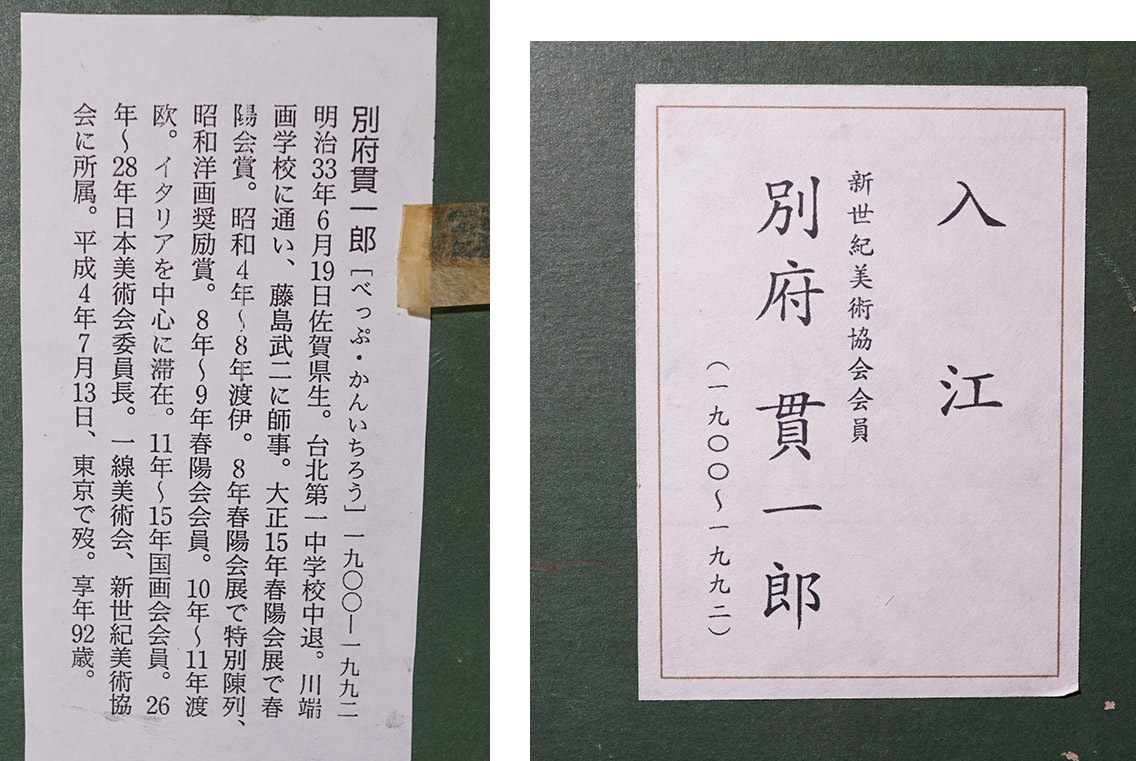 別府貫一郎［べっぷ・かんいちろう］一九〇〇－一九九二
明治33年6月19日佐賀県生。台北第一中学校中退。川端
画学校に通い、藤島武二に師事。大正15年春陽会展で春
陽会賞。昭和4年～8年渡伊。8年春陽会展で特別陳列、
昭和洋画奨励賞。8年～9年春陽会会員。10年～11年渡
欧。イタリアを中心に滞在。11年～15年国画会会員。26
年～28年日本美術会委員長。一線美術会、新世紀美術協
会に所属。平成4年7月13日、東京で歿。享年92歳。
入江
新世紀美術協会会員
別府貫一郎
（一九〇〇～一九九二）